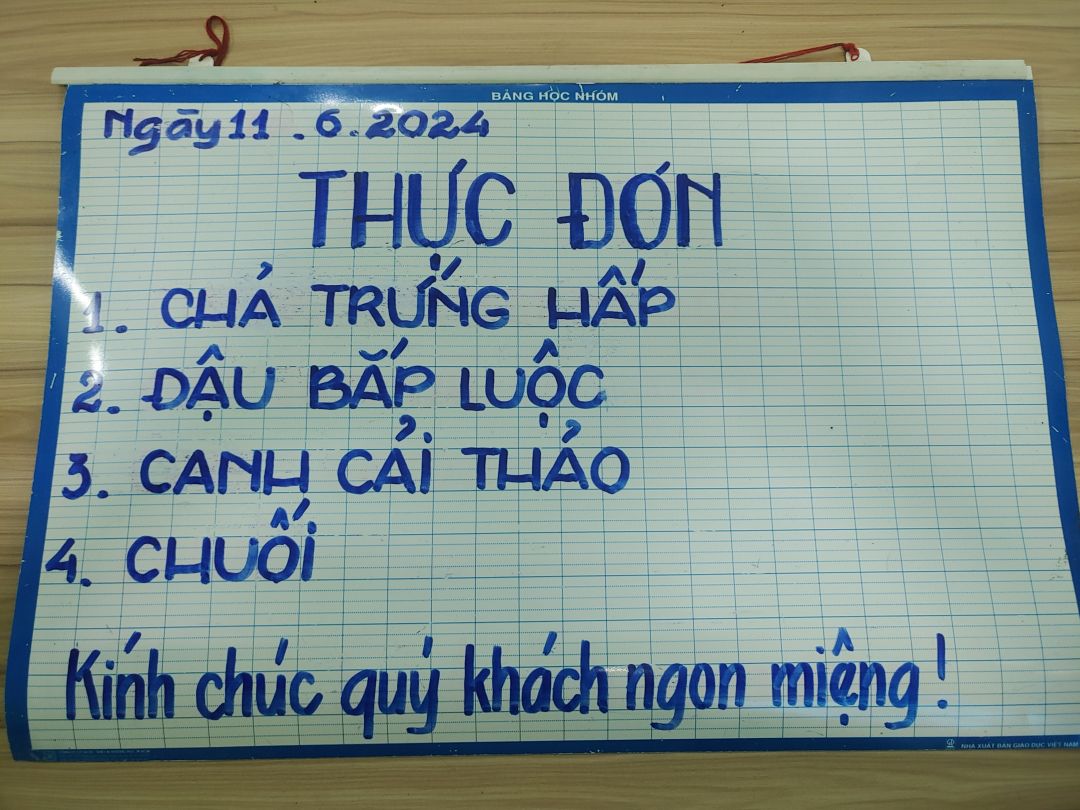 BẢNG HỌC NHÓM
Ngày 11.6.2024
THỰC ĐƠN
1. CHẢ TRỨNG HẤP
2. ĐẬU BẮP LUỘC
3. CANH CẢI THẢO
4. CHUỐI
Kính chúc quý khách ngon miệng!
NHÀ XUẤT BẢN GIÁO DỤC VIỆT NAM